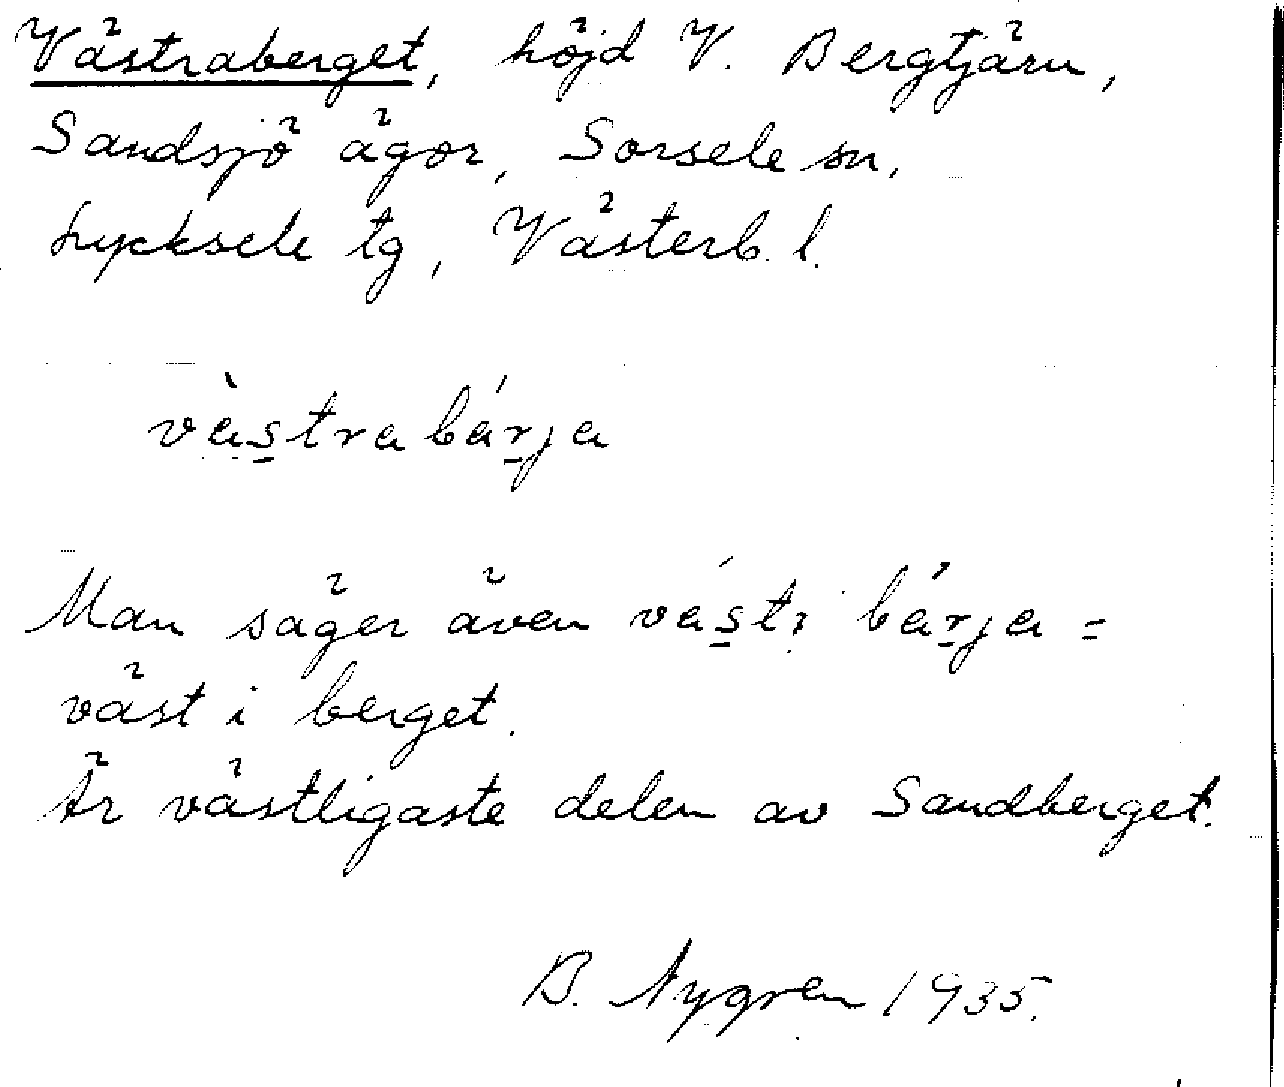 Västraberget, höjd V. Bergtjärn,
Sandsjö ägor, Sorsele sn,
Lycksele tg, Västerb. l.
vàs̱trabáṟja
Man säger även vás̱tı báṟja =
väst i berget.
Är västligaste delen av Sandberget.
B. Nygren 1935.